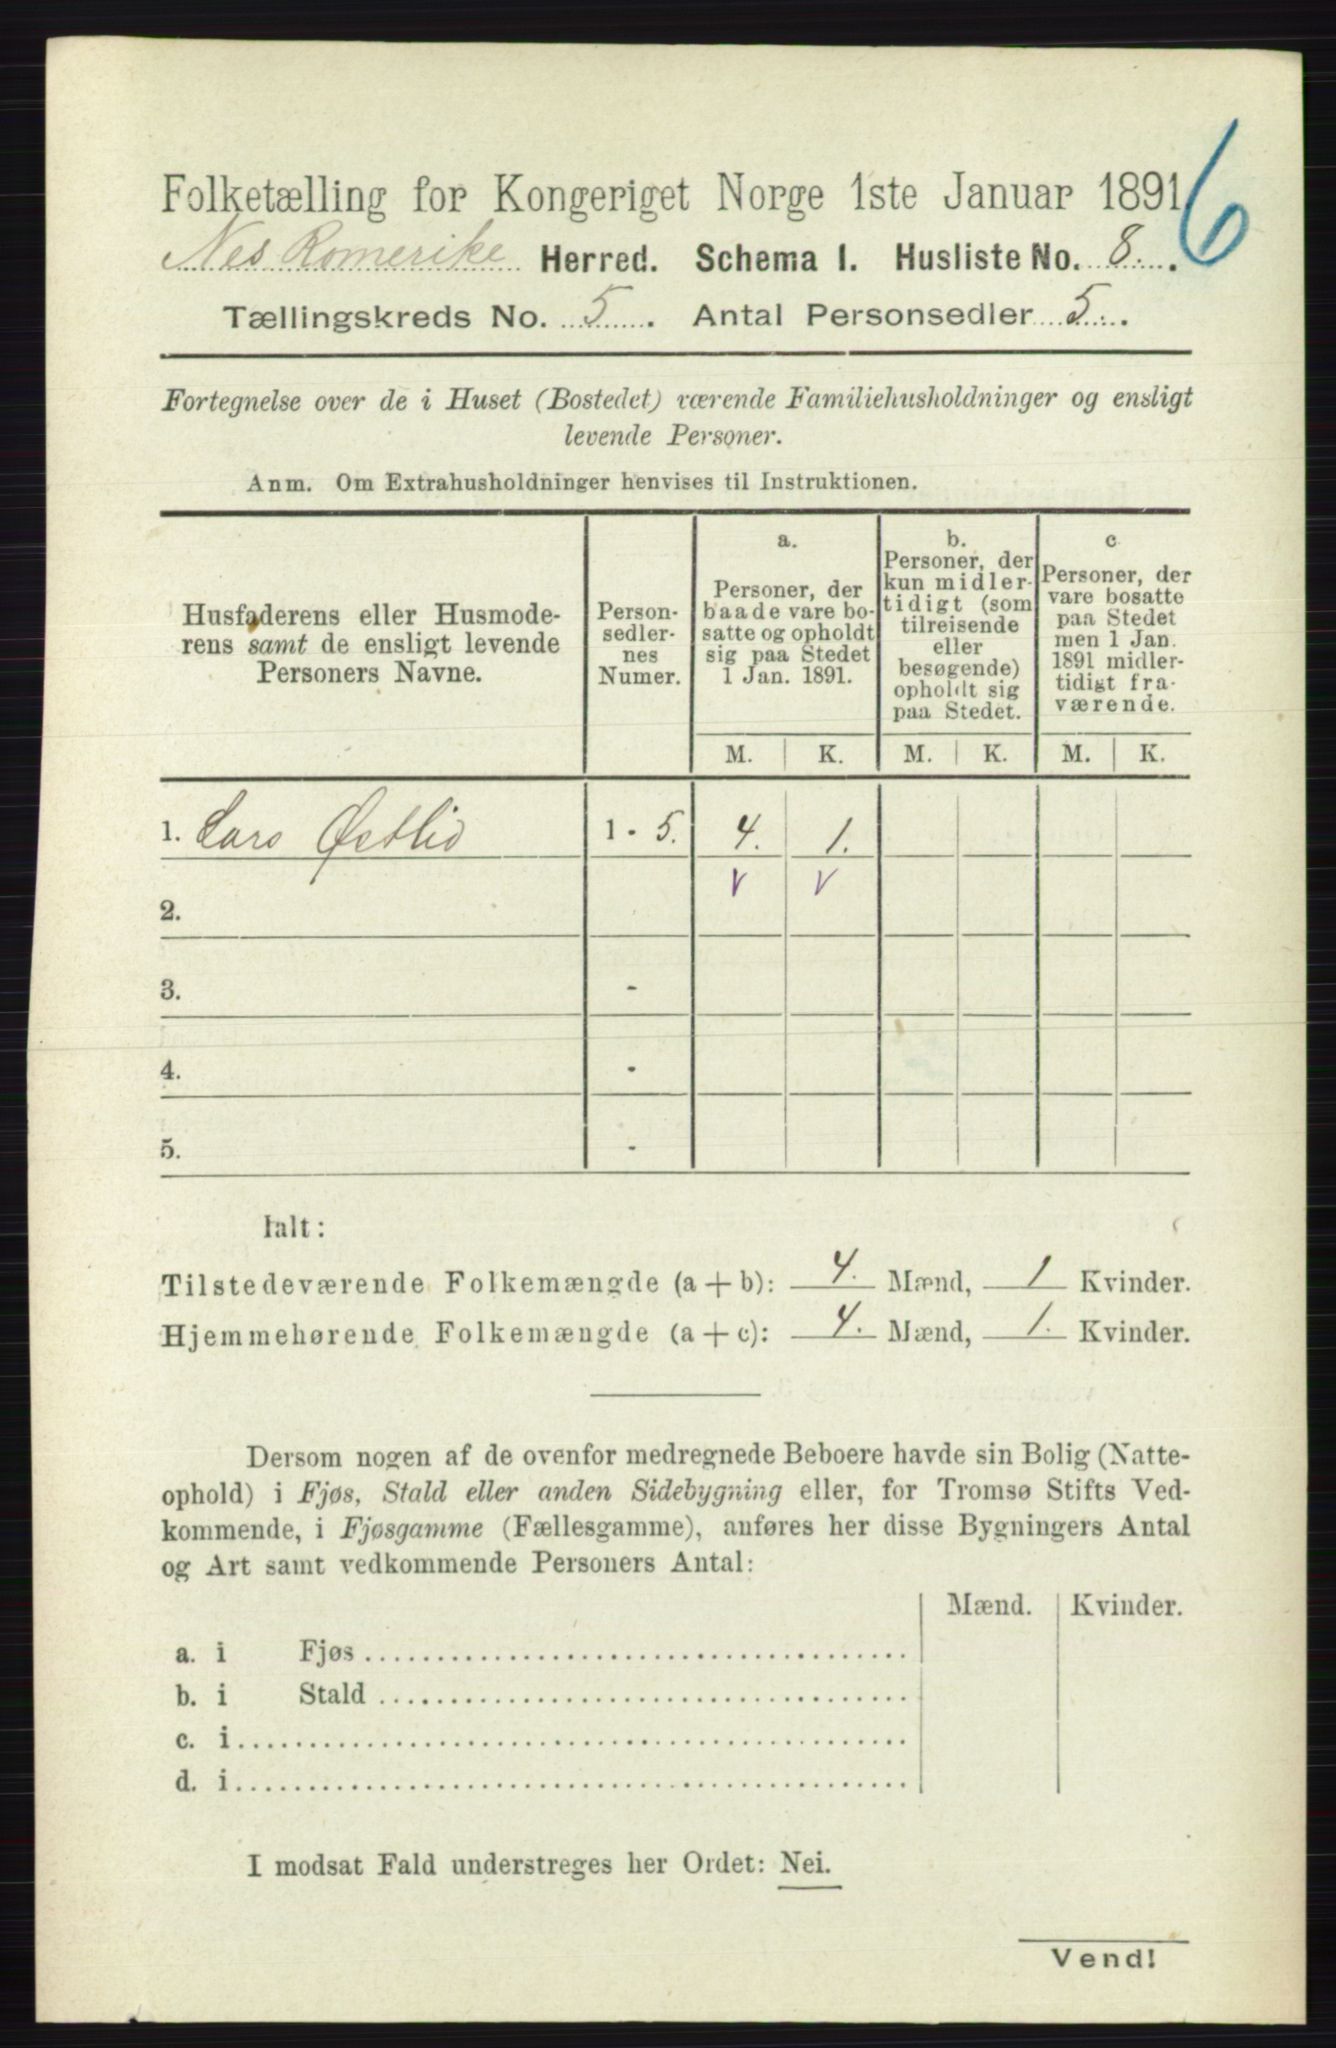 6
Folketælling for Kongeriget Norge 1ste Januar 1891
Nes Romerike Herred. Schema 1. Husliste No. 8.
Tællingskreds No. 5. Antal Personsedler 5.
Fortegnelse over de i Huset (Bostedet) værende Familiehusholdninger og ensligt
levende Personer.
Anm. Om Extrahusholdninger henvises til Instruktionen.
Husfaderens eller Husmode-
rens samt de ensligt levende
Personers Navne.
Person-
sedler-
nes
Numer.
a.
Personer, der
baade vare bo-
satte og opholdt
sig paa Stedet
1 Jan. 1891.
b.
Personer, der
kun midler-
tidigt (som
tilreisende
eller
besøgende)
opholdt sig
paa Stedet.
c
Personer, der
vare bosatte
paa Stedet
men 1 Jan.
1891 midler-
tidigt fra-
værende.
M. K. M. K. M. K.
1. Lars Østlid 1 - 5. 4. 1.
v v
2.
3. -
4. -
5. -
Ialt:
Tilstedeværende Folkemængde (a + b): 4. Mænd, 1 Kvinder.
Hjemmehørende Folkemængde (a + c): 4. Mænd, 1. Kvinder.
Dersom nogen af de ovenfor medregnede Beboere havde sin Bolig (Natte-
ophold) i Fjøs, Stald eller anden Sidebygning eller, for Tromsø Stifts Ved-
kommende, i Fjøsgamme (Fællesgamme), anføres her disse Bygningers Antal
og Art samt vedkommende Personers Antal:
Mænd. Kvinder.
a. i Fjøs
b. i Stald
c. i
d. i
I modsat Fald understreges her Ordet: Nei.
Vend!